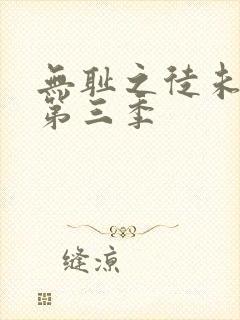 無耻之徒未
第三季
缝凉